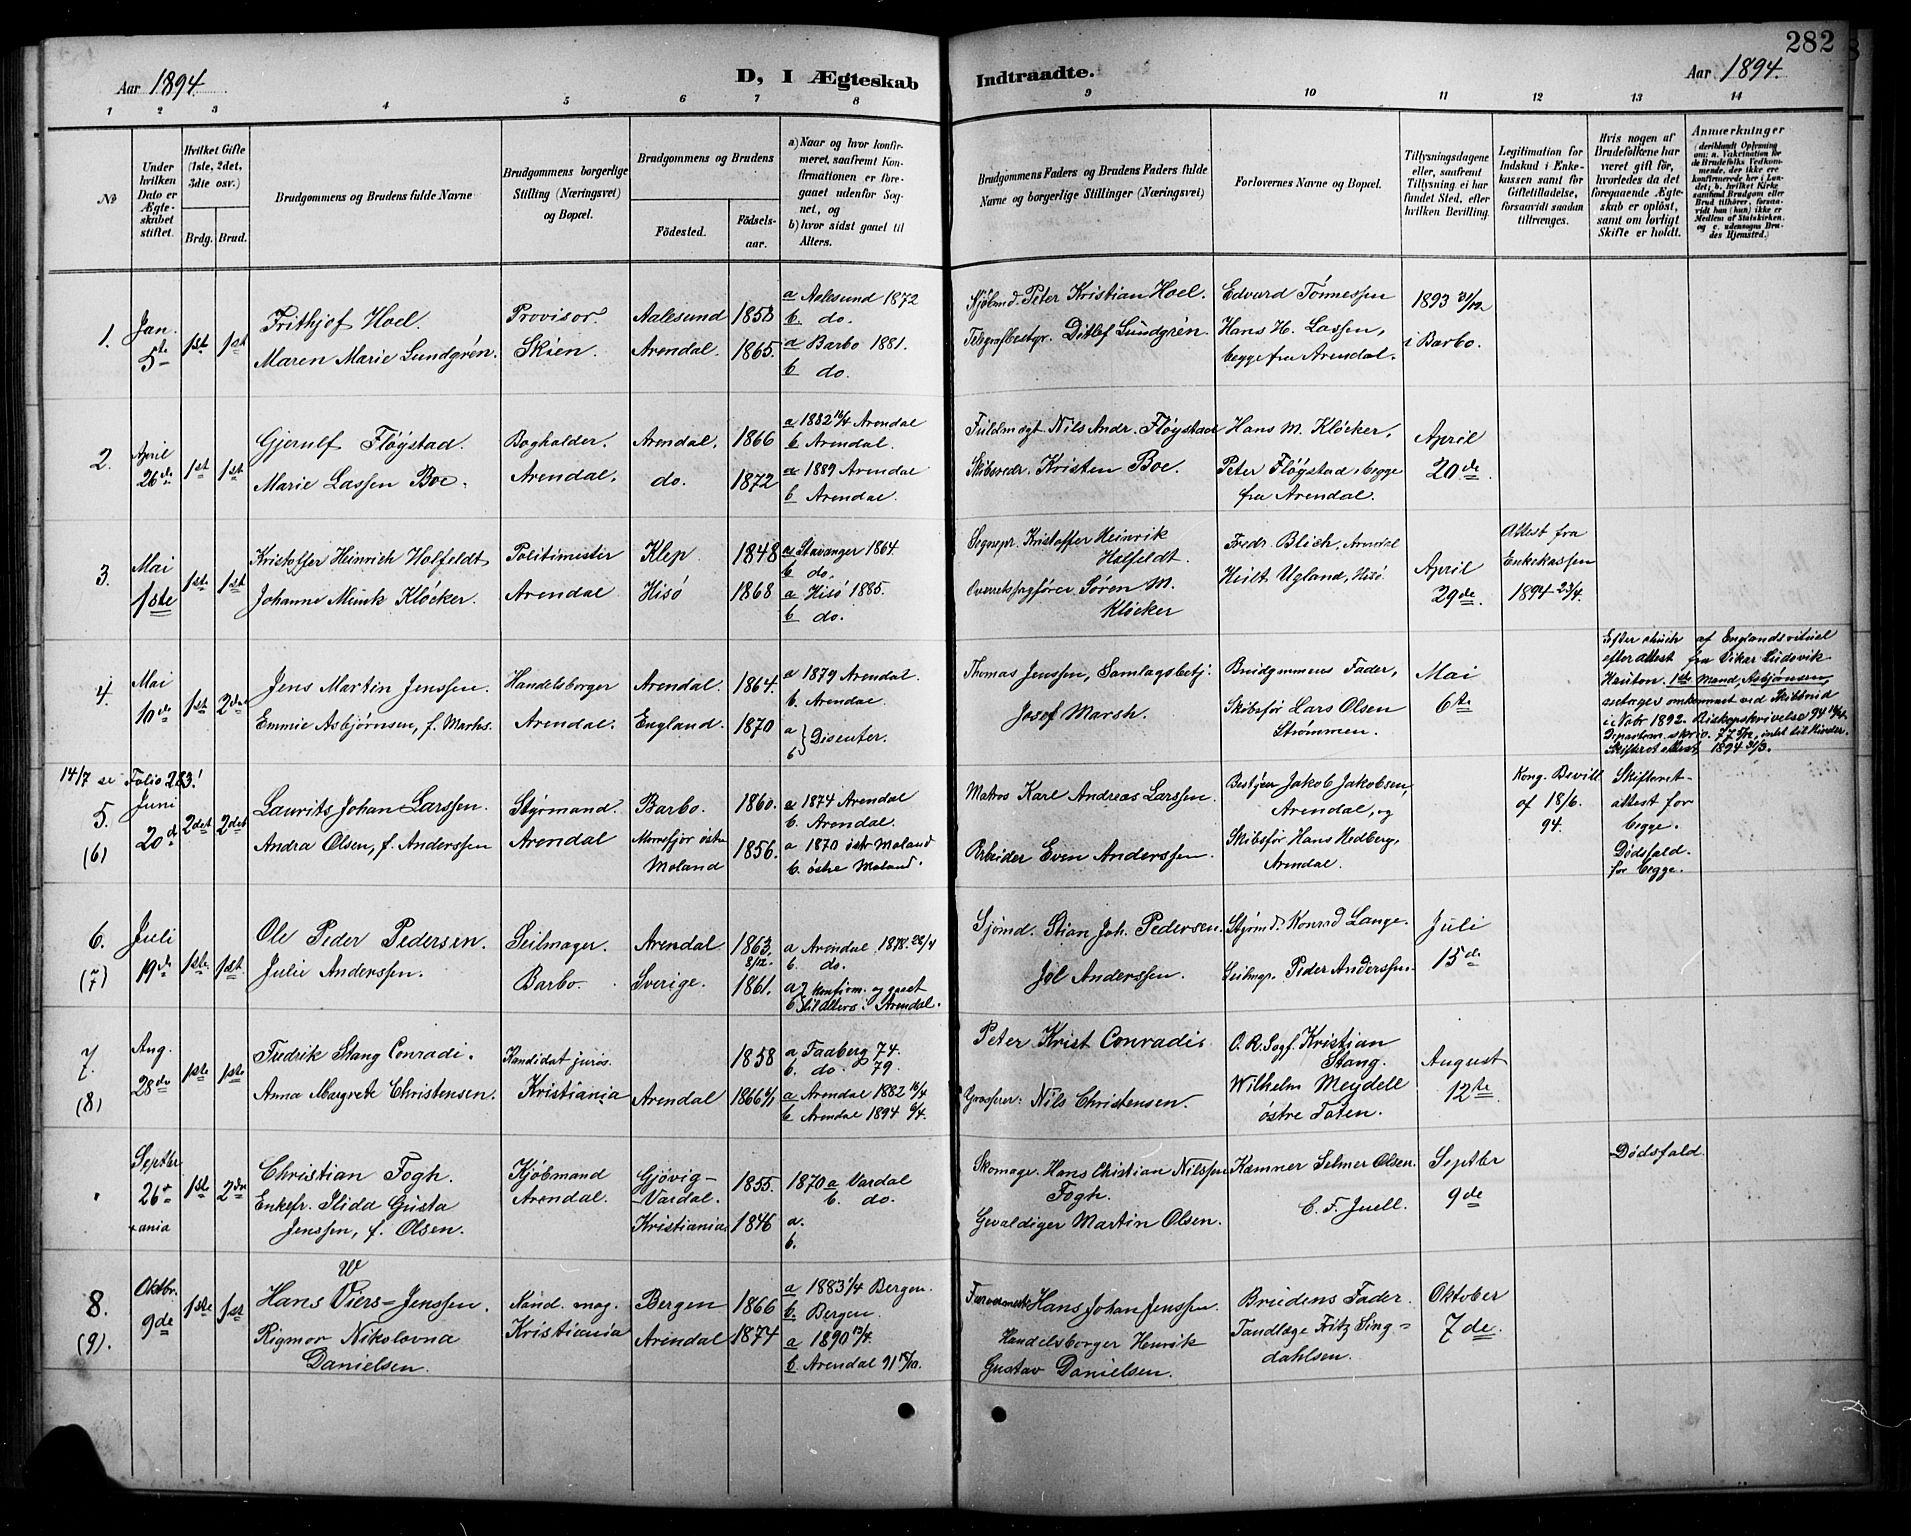 282
Aar 1894.
D, I Ægteskab
Indtraadte.
Aar 1894.
1 2 3 4 5 6 7 8 9 10 11 12 13 14
No
Under hvilken Dato er Ægteskabet stiftet.
Hvilket Gifte (1ste, 2det, 3dte osv.)
Brdg. Brud.
Brudgommens og Brudens fulde Navne
Brudgommens borgerlige Stilling (Næringsvei) og Bopæl.
Brudgommens og Brudens
Födested.
Födselsaar.
a) Naar og hvor konfirmeret, saafremt Konfirmationen er foregaaet udenfor Sognet, og
b) hvor sidst gaaet til Alters.
Brudgommens Faders og Brudens Faders fulde Navne og borgerlige Stillinger (Næringsvei)
Forlovernes Navne og Bopæl.
Tillysningsdagene eller, saafremt Tillysning ei har fundet Sted, efter hvilken Bevilling.
Legitimation for Indskud i Enkekassen samt for Giftetilladelse, forsaavidt saadan tiltrænges.
Hvis nogen af Brudefolkene har været gift før, hvorledes da det foregaaende Ægteskab er oplöst, samt om lovligt Skifte er holdt.
Anmærkninger (deriblandt Oplysning om: a. Vakcination for de Brudefolks Vedkommende, der ikke ere konfirmerede her i Landet; b. hvilket Kirkesamfund Brudgom eller Brud tilhörer, forsaavidt han (hun) ikke er Medlem af Statskirken, og c. udensogns Brudes Hjemsted.)
1. Jan. 5te 1ste 1st
Frithjof Hoel. Provisor. Aalesund 1858 a Aalesund 1872
b do.
Maren Marie Lundgrén. Skien. Arendal. 1865. a Barbo 1881.
b do.
Peter Kristian Hoel. Edvard Tønnessen 1893 31/12
Telegrafbestyr. Ditlef Lundgrén. Hans H. Lassen, i Barbo.
begge fra Arendal.
2. April 26de 1st 1st
Gjerulf Fløystad. Bogholder. Arendal. 1866 a 1882 16/4 Arendal
b Arendal.
Marie Lassen Boe. Arendal. do. 1872 a 1889 Arendal
b Arendal.
Fuldmægt Nils Andr. Fløystad Hans M. Klöcker, April
Skibsredr. Kristen Boe. Peter Fløystad, begge 20de
fra Arendal.
3. Mai 1ste 1ste 1ste
Kristoffer Heinrich Holfeldt Politimester Klep 1848 a Stavanger 1864.
b do.
Johanne Munk Klöcker. Arendal Hisö 1868 a Hisö 1885.
b do.
Sognepr. Kristoffer Heinrik Holfeldt. Fredr. Blich, Arendal
Overretssagfører Søren M. Klöcker Ugland, Hisö
April 29de.
Attest fra Enkekassen 1894 23/4.
4. Mai 10de 1st 2den
Jens Martin Jenssen. Handelsborger Arendal. 1864. a 1879 Arendal.
b. Arendal.
Emmie Asbjørnsen, f. Marhs. Arendal. England. 1870 a b } Disenter.
Thomas Jenssen, Samlagsbetj. Brudgommens Fader, Mai
Josef Marsh. Skibsfør Lars Olsen 6te
Strømmen.
af Englands ritual
efter attest fra Vikar Ludovik
1ste Mand, Asbjørnsen,
antages omkommet ved Skibbrud
i Nobr 1892. Biskopskrivelse 94
intet til hinder.
1894 31/3.
14/7 se Folio 283!
5. (6) Juni 20d 2det 2det
Laurits Johan Larssen. Styrmand Barbo. 1860. a 1874 Arendal
b. Arendal.
Andra Olsen, f. Anderssen Arendal Morrefjær östre Moland 1856. a 1870 östr Moland
b. östre Moland.
Matros Karl Andreas Larssen. Bestyrer Jakob Jakobsen,
Arendal, og
Arbeider Even Anderssen. Skibsfør Hans Hedberg,
Arendal.
Kong. Bevill. af 18/6. 94.
Skifteret-attest for begge. Dødsfald. for begge.
6. (7) Juli 19de 1ste 1ste
Ole Peder Pedersen. Seilmager. Arendal 1863. 8/12. a Arendal 1878. 28/4
b. do.
Julie Anderssen. Barbo. Sverige. 1861. a b } konfirm. og gaaet
til Alters i Arendal.
Sjømd. Stian Joh. Pedersen. Styrmd. Konrad Lange. Juli
Jøl Anderssen. Seilmgr. Peder Anderssen. 15de
7. (8) Aug. 28de 1ste 1ste
Fredrik Stang Conradi. Kandidat juris. 1858 a Faaberg 74.
b. do. 79.
Anna Margrete Christensen. Kristiania Arendal 1866 a Arendal 1882 16/4
b Arendal 1894 6/4.
Peter Krist Conradi. O.R.Sagf. Kristian Stang. August
Grosserer. Nils Christensen. Wilhelm Meydell 12te
östre Toten.
Septbr 26te 1ste 2den
Christian Fogh. Kjøbmand Gjøvig-Vardal. 1855. 1870 a Vardal
b. do.
Enkefr. Ilida Gusta Jenssen, f. Olsen. Arendal. Kristiania 1846 a.
b.
Skomager. Hans Christian Nilssen Fogh. Kæmner Selmer Olsen. Septbr
Gevaldiger Martin Olsen. C. F. Juell. 9de
Dødsfald.
8. (9). Oktbr. 9de 1ste 1st
W
Hans Viers-Jenssen. Kand. mag. Bergen 1866 a 1883 1/4 Bergen.
b. Bergen.
Rigmor Nikolovna Danielsen. Kristiania Arendal 1874 a 1890 13/4.
b Arendal 91
Hans Johan Jenssen. Brudens Fader. Oktober
Handelsborger Henrik Gustav Danielsen. Tandlæge Fritz Sing-dahlsen. 7de.